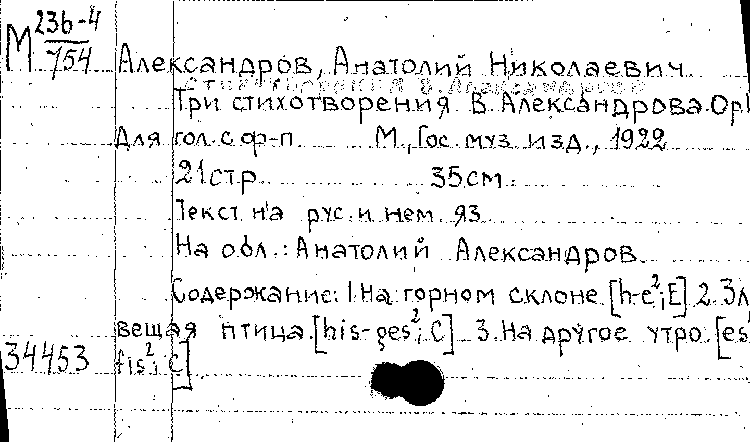 М 236-4
754
Александров, Анатолий Николаевич
Три стихотворения В. Александрова. Ор
Для гол. с ф-п М., Гос. муз. изд., 1922
21 стр. 35 см.
Текст на рус. и нем. яз.
На обл.: Анатолий Александров.
Содержание: 1. На горном склоне. [h-e²; E] 2. Зл
вещая птица. [his-ges²; C] 3. На другое утро. [es
34453 fis²; C]